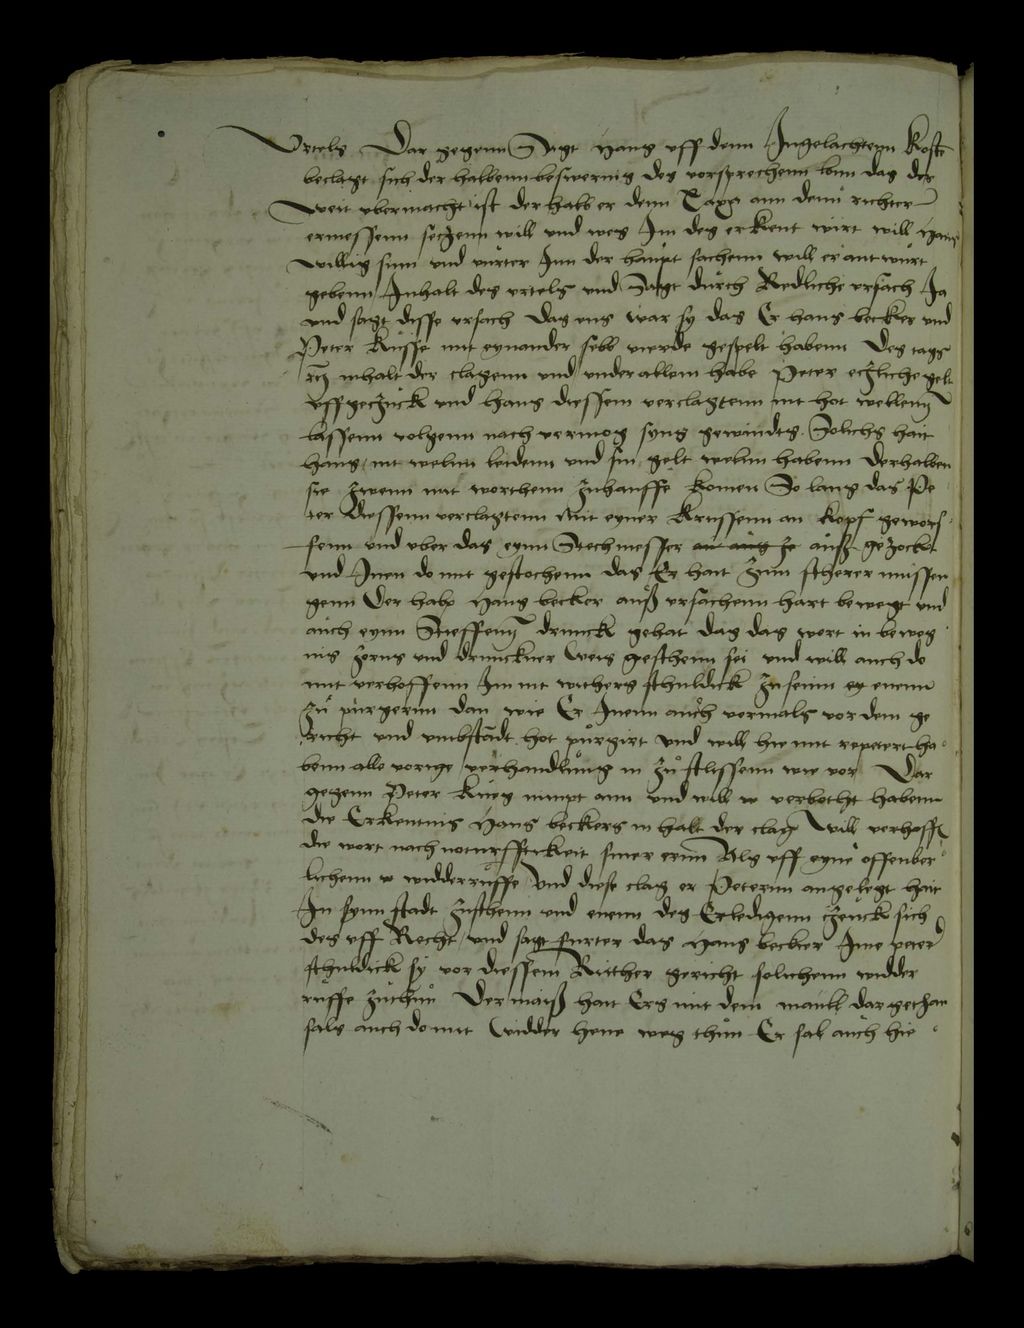 Urtels Dar gegenn Sagt Hans uff denn Ingelachtenn koste
beclagt sich der halbenn beswernis des vorsprechenn lonn das der
Weit ubermacht ist der halb er denn Taxa ann denn richter
ermessenn seczenn will und wes Im des erkent wirt will Hans
Willig sinn und vurter Inn der haupt sachenn will er antwurt
gebenn Inhalt des urtels und Sagt durch Redliche ursach Ja
und sagt disse ursach das uns war sy das Er hans becker und
Peter Kusse mit eynander selb vierde gespelt habenn des tags
inhalt der clagenn und under allem habe Peter eczliche gelt
uffgezuck und hans diessem verclagtenn nit hot wellenn
lassenn volgenn nach vermog syns gewindts Solichs hait
hans nit welnn leidenn und sin gelt welnn habenn Derhalben
sie zwenn mit worthenn zuhauffe komen So lang das Pe
ter diessenn verclagtenn Mit eyner krussenn an kopf gewors
fenn und uber das eynn Stechmesser ausz gezockt
und Inen do mit gestochenn das Er hait zum scherer mussen
genn Der halb Hans becker auß ursachenn hart bewegt und
auch eynn Steffenn drunck gehat das das wort in beweg
nis zorns und drunckner weis geschenn sei und will auch do
mit verhoffenn Im nit withers schuldick zu seinn enenn
zu purgernn dan wie Er Inenn auch vermals vor dem ge
richt und umbstadt hot purgirt und will hie mit repetert ha
benn alle vorige verhandlung in zu slissenn wie vor Dar
gegenn Peter Kues nimpt ann und will verbotht habenn
die Erkentnis Hans beckers in halt der clag Will verhoff
die wort nach noturfftikeit siner erenn Als uff eyne offenber
lichenn widderruffe und diese clag er Peternn angelegt hait
In synn stadt zuschenn und enenn des Erledigenn czeuck sich
des uff Recht und sagt furter das Hans becker Ime peter
schuldick sy vor diessem Ritther gericht solichenn widder
ruffe zuthun Der maiß hait Ers mit dem maull dar gethan
sals auch do mit Widder hene weg thun Er sal auch hie